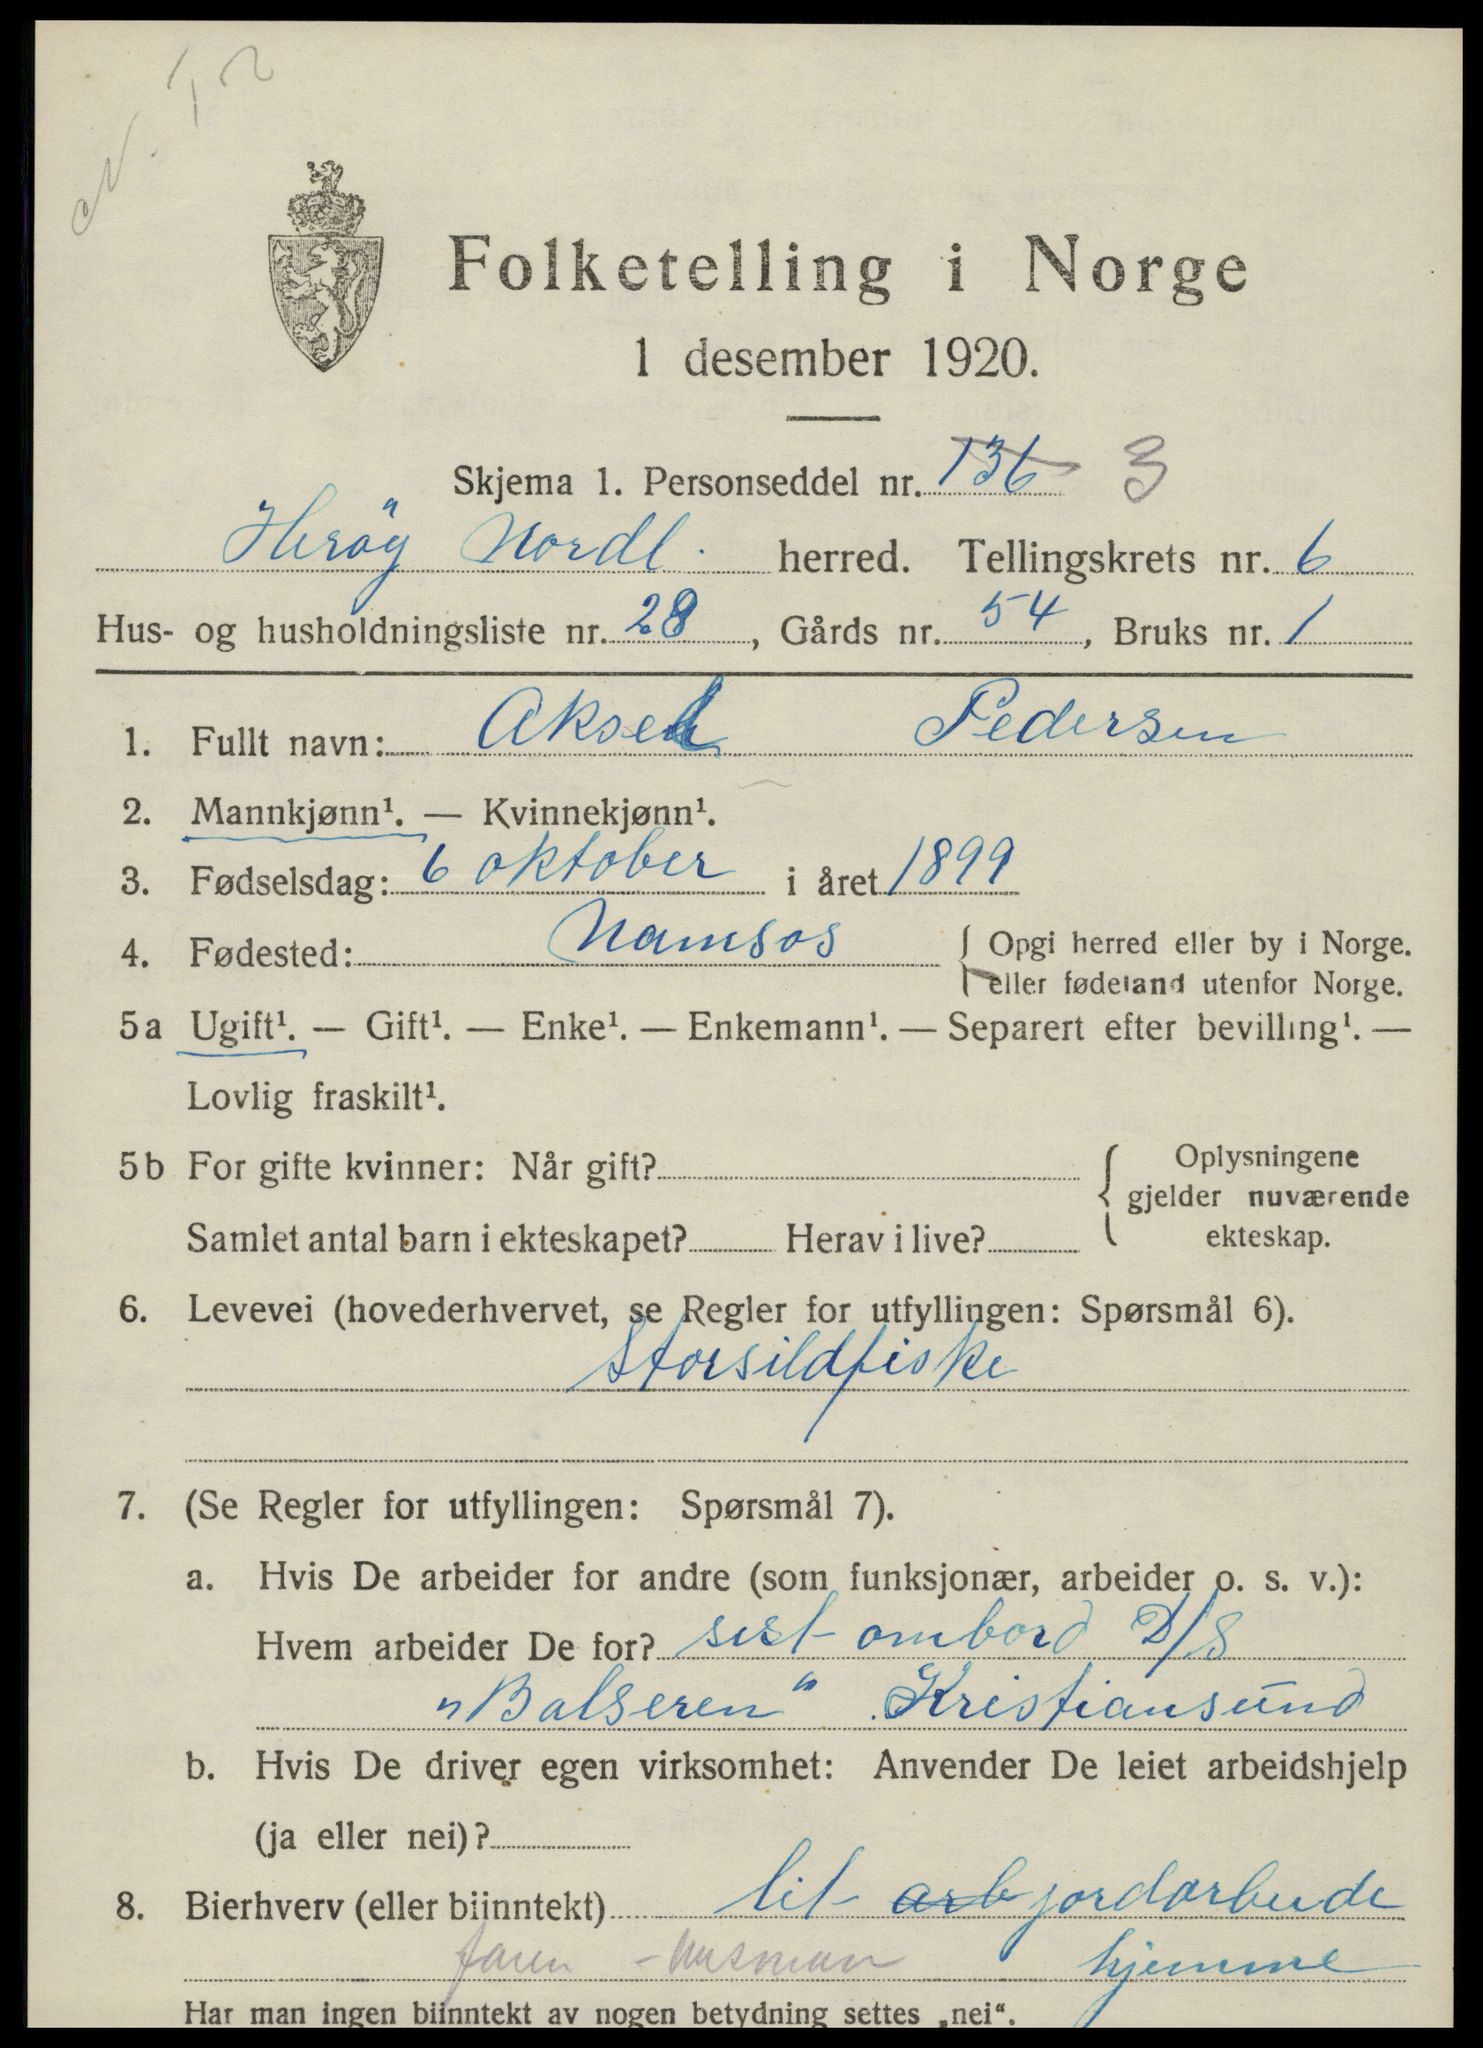 N. T 2
Folketelling i Norge
1 desember 1920.
Skjema 1. Personseddel nr. 136 3
Herøy Nordl. herred. Tellingskrets nr. 6
Hus- og husholdningsliste nr. 28, Gårds nr. 54, Bruks nr. 1
1. Fullt navn: Aksel Pedersen
2. Mannkjønn¹. — Kvinnekjønn¹.
3. Fødselsdag: 6 oktober i året 1899
4. Fødested: Namsos { Opgi herred eller by i Norge.
eller fødeland utenfor Norge.
5a Ugift¹. — Gift¹. — Enke¹. — Enkemann¹. — Separert efter bevilling¹. —
Lovlig fraskilt¹.
5b For gifte kvinner: Når gift? { Oplysningene
gjelder nuværende
Samlet antal barn i ekteskapet? Herav i live? ekteskap.
6. Levevei (hovederhvervet, se Regler for utfyllingen: Spørsmål 6).
Storsildfiske
7. (Se Regler for utfyllingen: Spørsmål 7).
a. Hvis De arbeider for andre (som funksjonær, arbeider o. s. v.):
Hvem arbeider De for? sist ombord D/S
„Balseren" Kristiansund
b. Hvis De driver egen virksomhet: Anvender De leiet arbeidshjelp
(ja eller nei)?
8. Bierhverv (eller biinntekt) lit arb jordarbeide
faren - husman hjemme
Har man ingen biinntekt av nogen betydning settes „nei“.